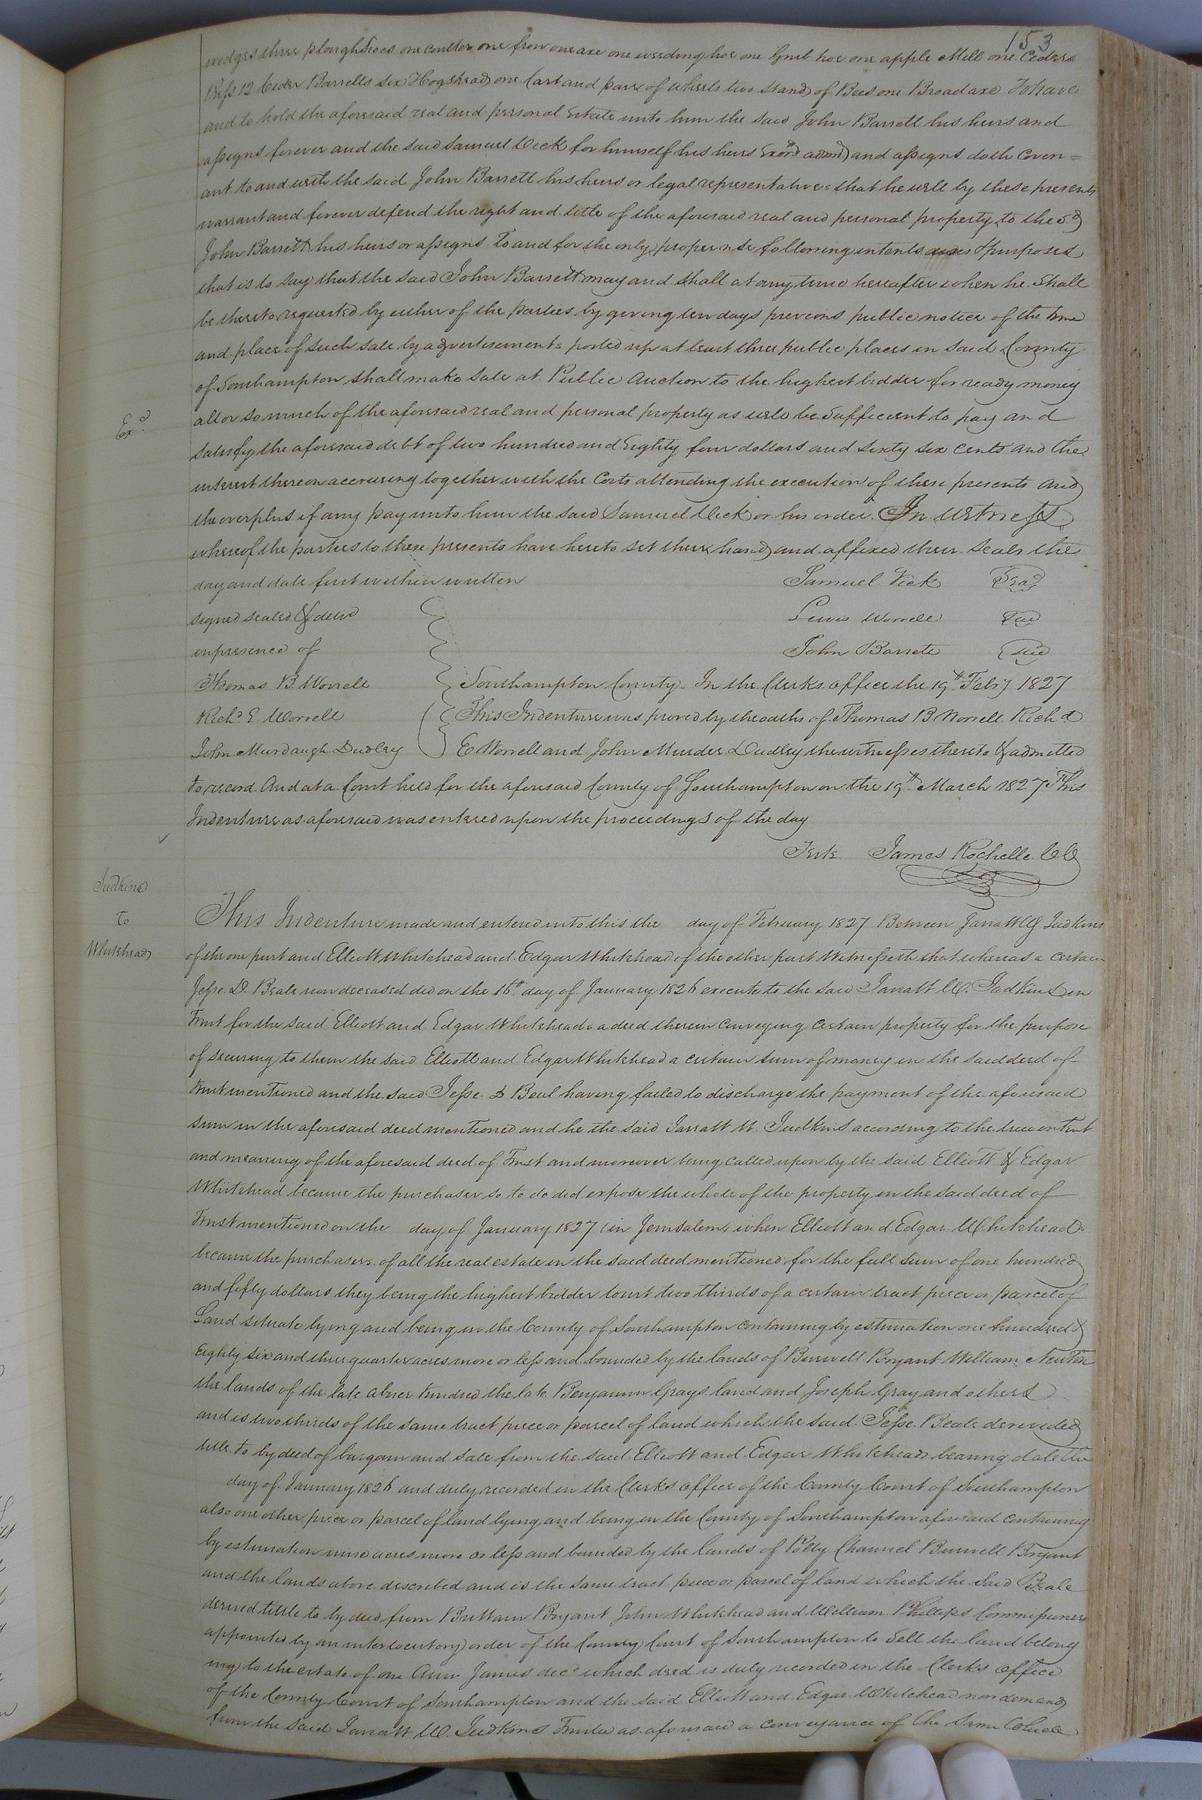 153
wedges three plough hoes one coulter one frow one axe one weeding hoe one grub hoe one apple Mill one Ceders
Press 12 Cider Barrells six Hogsheads one Cart and pare of wheels two stands of Bees one Broad axe To have
and to hold the aforesaid real and personal Estate unto him the said John Barrett his heirs and
assigns forever and the said Samuel Vick for himself his heirs and assigns doth Coven=
ant to and with the said John Barrett his heirs or legal representatives that he will by these presents
warrant and forever defend the right and title of the aforesaid real and personal property to the sd
John Barrett his heirs or assigns to and for the only proper use following intents & purposes
that is to say that the said John Barrett may and shall at any time hereafter when he shall
be thereto requested by either of the parties by giving ten days previous public notice of the time
and place of such sale by advertisements posted up at least three public places in said County
of Southampton shall make sale at Public Auction to the highest bidder for ready money
all or so much of the aforesaid real and personal property as will be sufficient to pay and
Exd
satisfy the aforesaid debt of two hundred and Eighty four dollars and sixty six cents and the
interest thereon accruing together with the Costs attending the execution of these presents and
the overplus if any pay unto him the said Samuel Vick or his order. In witness
whereof the parties to these presents have hereto set their hands and affixed their seals the
day and date first within written Samuel Vick Seal
signed sealed & delivd Lewis Worrell Seal
in presence of John Barrett Seal
Thomas B. Worrell Southampton County In the Clerks office the 19th Feby 1827
Richd E Worrell This Indenture was proved by the oaths of Thomas B Worrell Richd
John Murdaugh Dudley E Worrell and John Murder Dudley the witnesses thereto & admitted
to record And at a Court held for the aforesaid County of Southampton on the 19th March 1827 This
Indenture as aforesaid was entered upon the proceedings of the day
Teste James Rochelle CC
Judkins
To
Whitehead
This Indenture made and entered into this the day of February 1827 Between Jarratt W Judkins
of the one part and Elliott Whitehead and Edgar Whitehead of the other part Witnesseth that whereas a certain
Jesse D. Beale now deceased did on the 16th day of January 1826 execute to the said Jarratt W. Judkins in
Trust for the said Elliott and Edgar Whitehead a deed therein conveying certain property for the purpose
of securing to them the said Elliott and Edgar Whitehead a certain sum of money in the said deed of
trust mentioned and the said Jesse D Beal having failed to discharge the payment of the aforesaid
sum in the aforesaid deed mentioned and he the said Jarratt W. Judkins according to the true intent
and meaning of the aforesaid deed of Trust and moreover being called upon by the said Elliott & Edgar
Whitehead became the purchaser so to do did expose the whole of the property in the said deed of
Trust mentioned on the day of January 1827 in Jerusalem, when Elliott and Edgar Whitehead
became the purchasers of all the real estate in the said deed mentioned for the full sum of one hundred
and fifty dollars they being the highest bidder towit two thirds of a certain tract piece or parcel of
Land situate lying and being in the County of Southampton containing by estimation one hundred &
Eighty six and three quarter acres more or less and bounded by the lands of Burwell Bryant William
the lands of the late Abner the late Benjamin Grays land and Joseph Gray and others
and is two thirds of the same tract piece or parcel of land which the said Jesse Beale
title to by deed of bargain and sale from the said Elliott and Edgar Whitehead bearing date the
day of January 1826 and duly recorded in the Clerks office of the County Court of Southampton
also one other piece or parcel of land lying and being in the County of Southampton aforesaid containing
by estimation nine acres more or less and bounded by the lands of Polly Burwell Bryant
and the lands above described and is the same tract piece or parcel of land which the said Beale
derived tittle to by deed from Brittain Bryant John Whitehead and William Phillips Commissioners
appointed by an interlocutory order of the County Court of Southampton to sell the land belong
ing to the estate of one Ann James decd which deed is duly recorded in the Clerks office
of the County Court of Southampton and the said Elliott and Edgar Whitehead now demands
from the said Jarratt W. Judkins Trustee as aforesaid a conveyance of the same